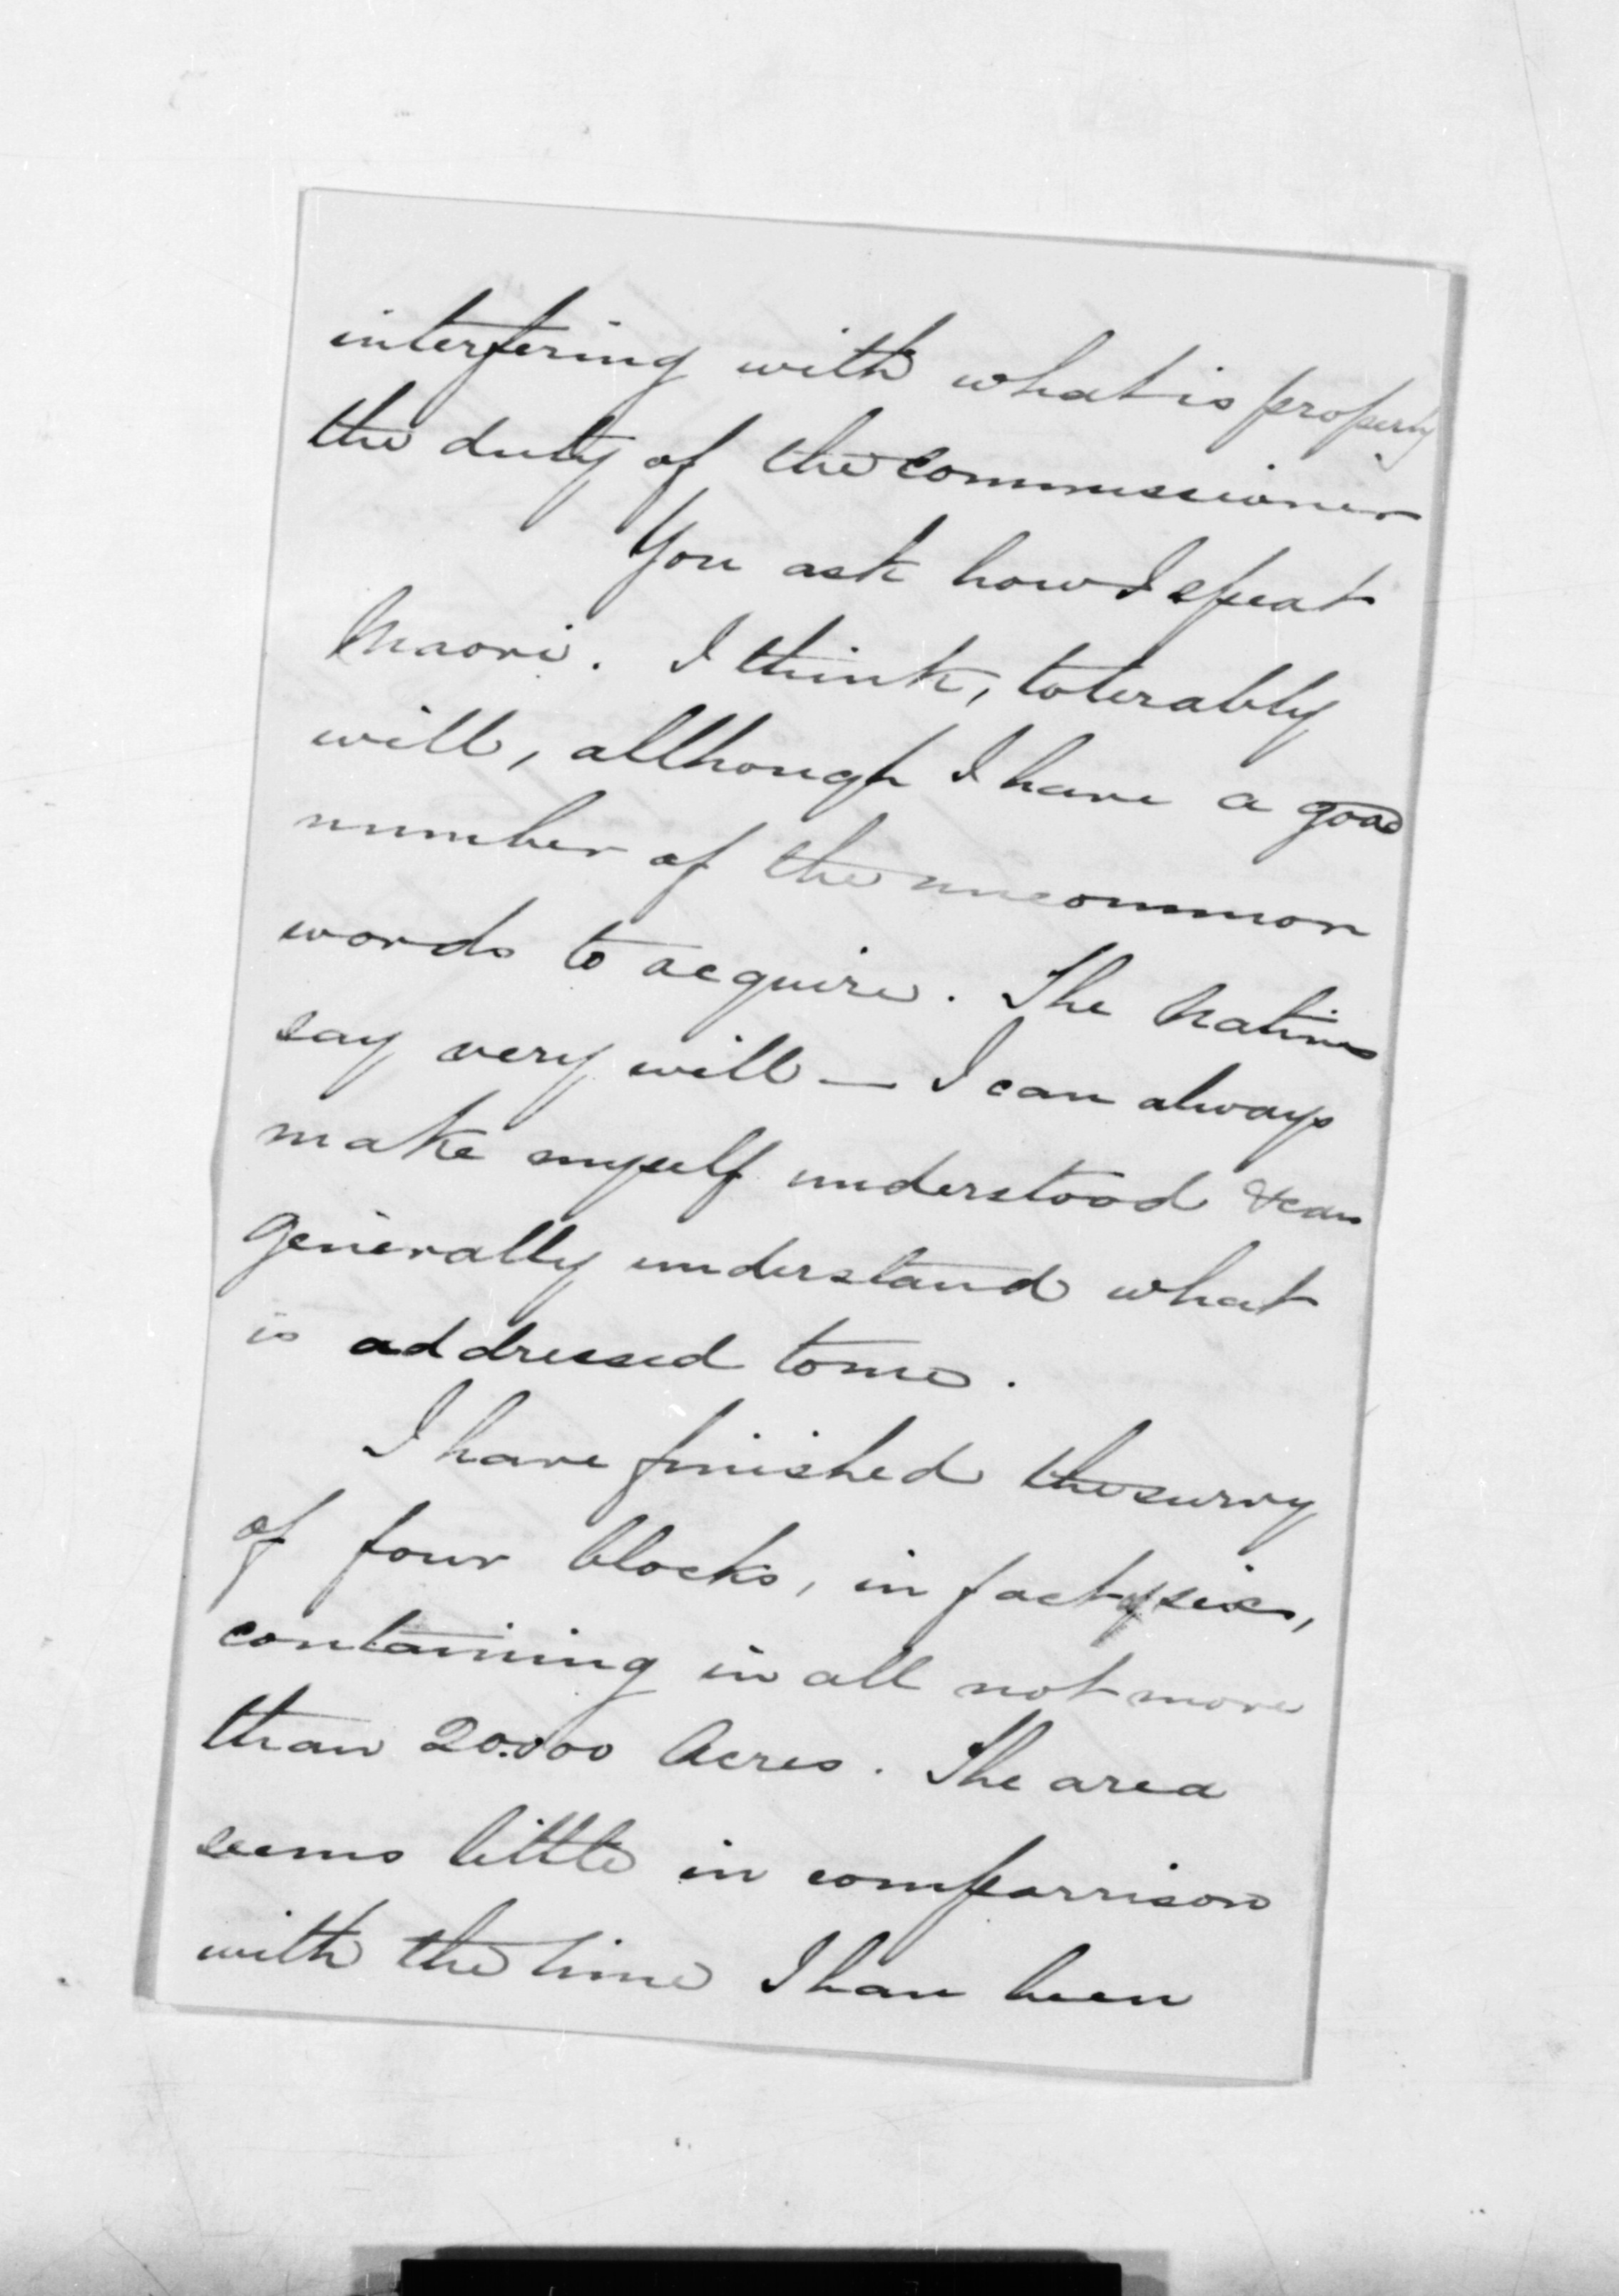 interfering with what is properly
the duty of the commissioner
You ask how I speak
Maori. I think, tolerably
well, allthough I have a good
number of the uncommon
words to acquire. The Natives
say very well — I can always
make myself understood & can
generally understand what
is addressed to me.
I have finished the survey
of four blocks, in fact of six,
containing in all not more
than 20.000 Acres. The area
seems little in comparrison
with the time I have been